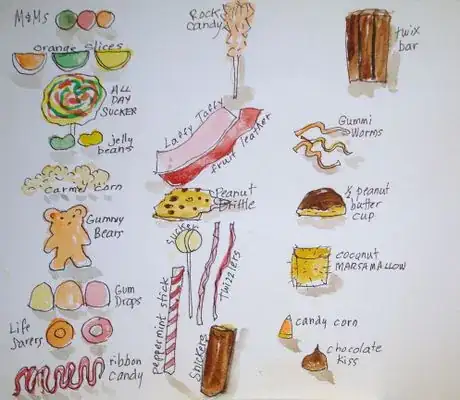 M&Ms
orange slices
ALL
DAY
SUCKER
jelly
beans
carmel corn
Gummy
Bears
Gum
Drops
Life
Savers
ribbon
candy
Rock
Candy
Laffy Taffy
fruit leather
Peanut
Brittle
sucker
Twizzlers
peppermint stick
Snickers
twix
bar
Gummi
Worms
½ peanut
butter
cup
coconut
MARSAMALLOW
candy corn
chocolate
kiss